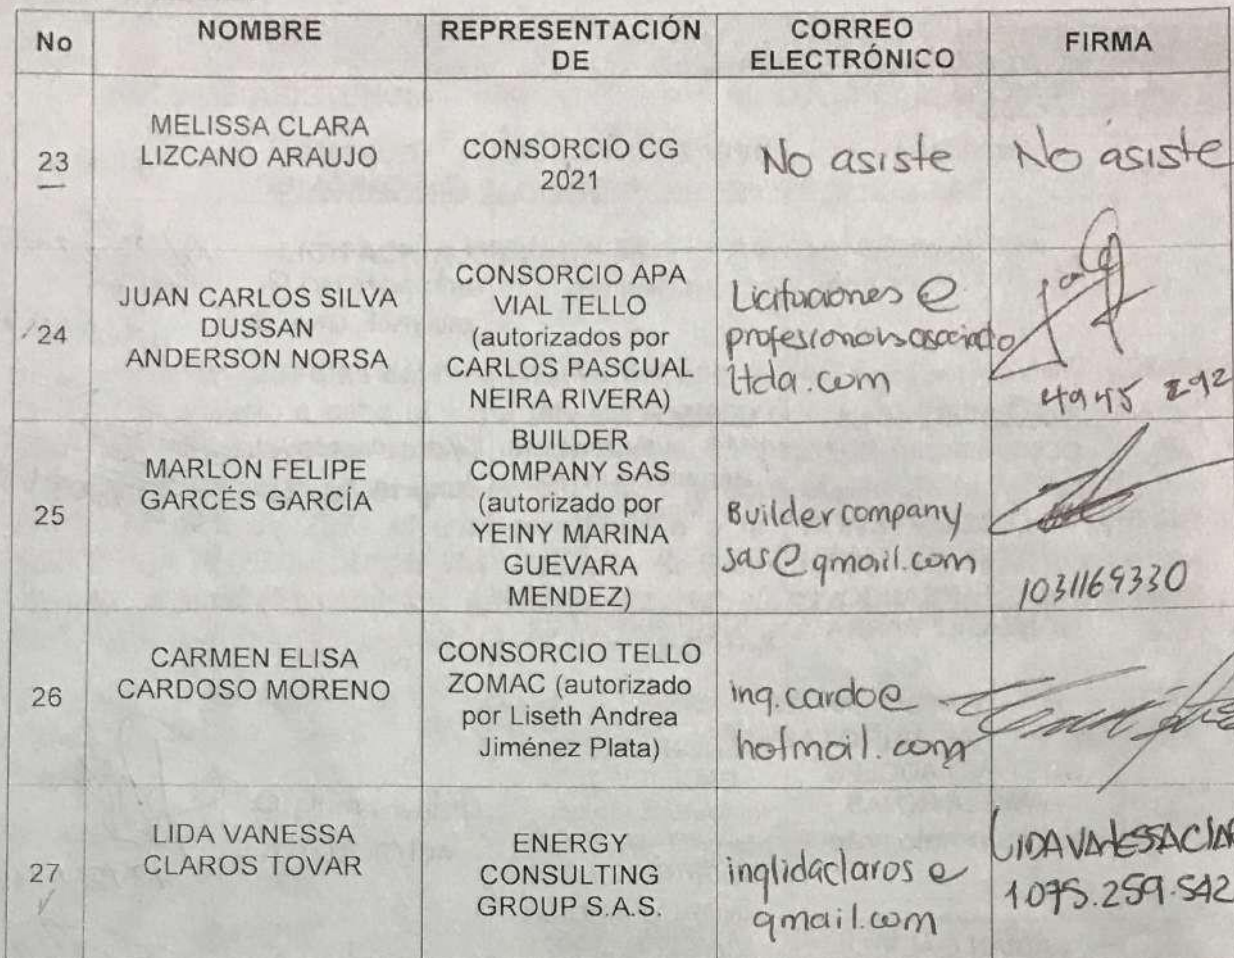 No
NOMBRE
REPRESENTACIÓN
DE
CORREO
ELECTRÓNICO
FIRMA
23
MELISSA CLARA
LIZCANO ARAUJO
CONSORCIO CG
2021
No asiste
No asiste
24
JUAN CARLOS SILVA
DUSSAN
ANDERSON NORSA
CONSORCIO APA
VIAL TELLO
(autorizados por
CARLOS PASCUAL
NEIRA RIVERA)
Licitaciones @
profesionalesasociados
ltda.com
4945 292
25
MARLON FELIPE
GARCÉS GARCÍA
BUILDER
COMPANY SAS
(autorizado por
YEINY MARINA
GUEVARA
MENDEZ)
Buildercompany
sas@gmail.com
1031169330
26
CARMEN ELISA
CARDOSO MORENO
CONSORCIO TELLO
ZOMAC (autorizado
por Liseth Andrea
Jiménez Plata)
ing.cardo@
hotmail.com
27
LIDA VANESSA
CLAROS TOVAR
ENERGY
CONSULTING
GROUP S.A.S.
inglidaclaros@
gmail.com
LIDA VANESSA CLAR
1.075.259.542